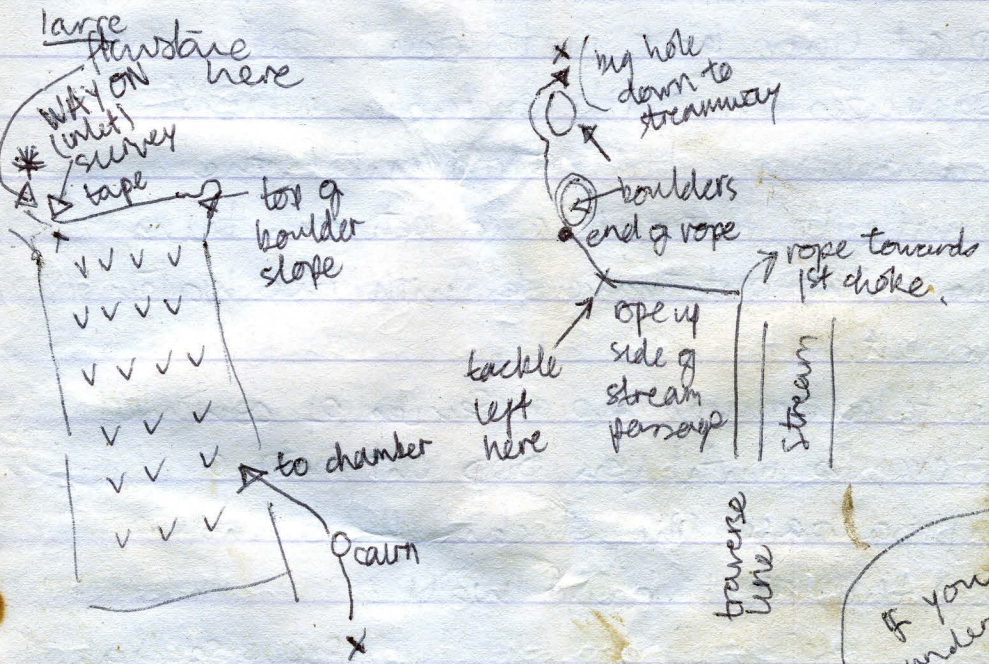 large
flowstone
here
WAY ON
(inlet)
survey
tape
top of
boulder
slope
to chamber
cairn
big hole
down to
streamway
boulders
end of rope
rope towards
1st choke.
rope up
side of
stream
passage
tackle
left
here
stream
traverse
line
If you
under